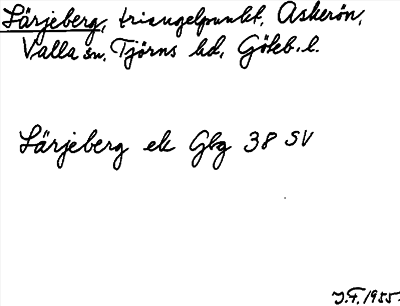 Lärjeberg, triangelpunkt, Askerön,
Valla sn, Tjörns hd, Göteb. l.
Lärjeberg ek Gbg 38 SV
J.F. 1955.